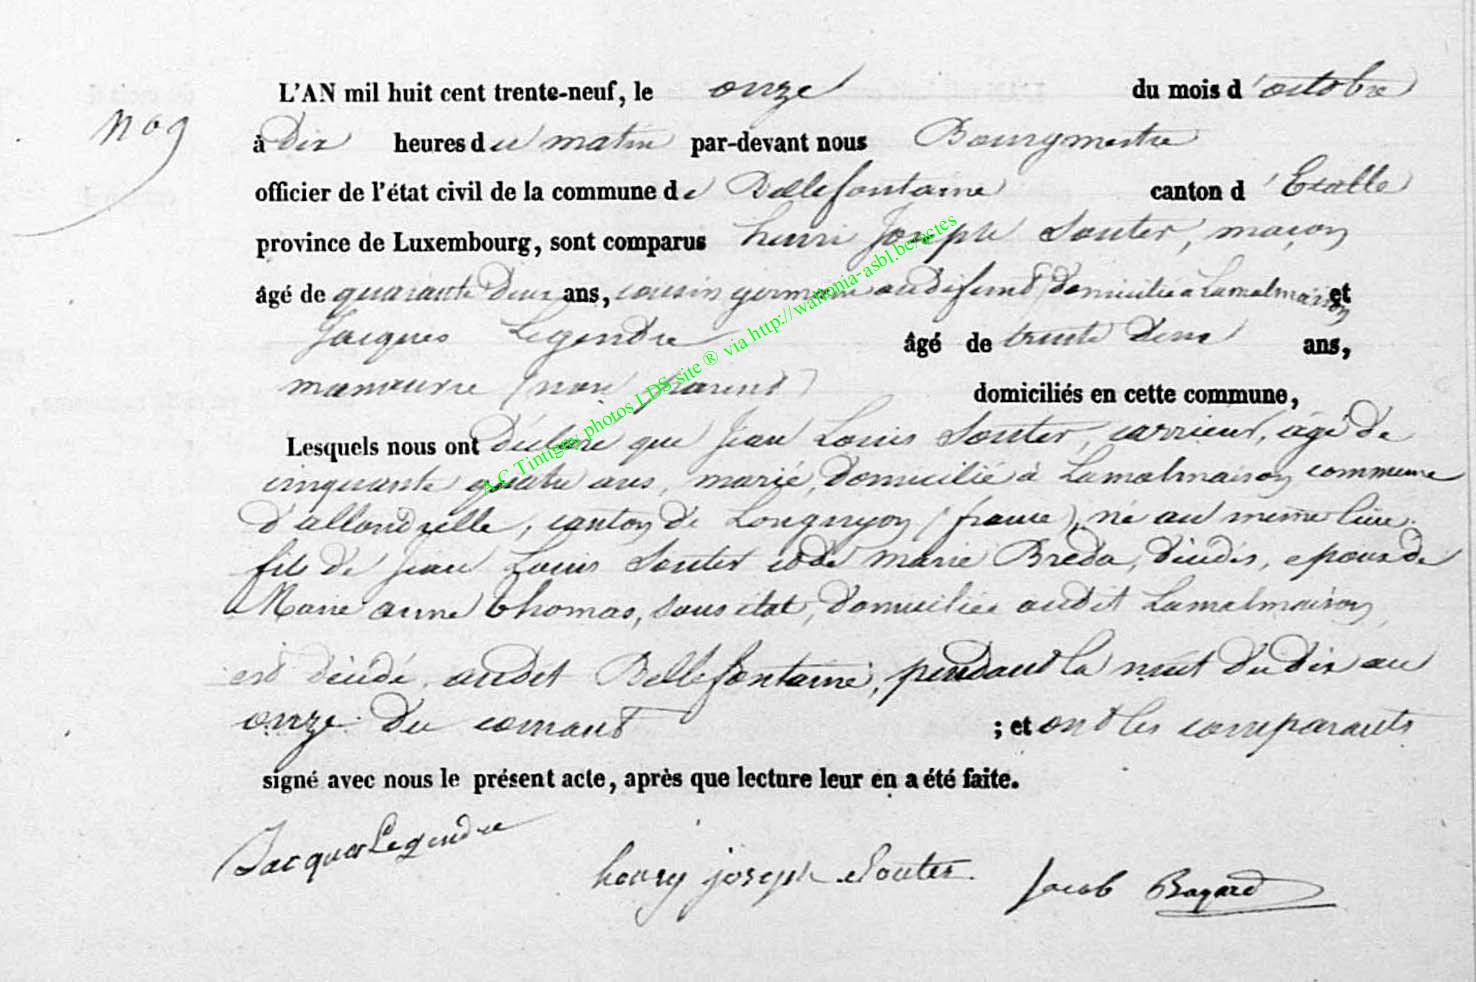 L'AN mil huit cent trente-neuf, le onze du mois d'octobre
no 9
à Dix heures du matin par-devant nous Bourgmestre
officier de l'état civil de la commune de Bellefontaine canton d'Etalle
province de Luxembourg, sont comparus henri Joseph Souter, maçon
âgé de quarante Deux ans, cousin germain audit defunt, domicilié a Lamalmaison et
Jacques Legendre âgé de trente deux ans,
manoeuvre (non parent) domiciliés en cette commune,
Lesquels nous ont déclaré que Jean Louis Souter, carrieur, âgé de
cinquante quatre ans, marié, domicilié à Lamalmaison commune
d'allondrelle, canton de Longuyon (france), né au même lieu,
fils de Jean Louis Souter et de marie Breda, décédés, epoux de
Marie anne thomas, sans état, domiciliée audit Lamalmaison,
est décédé, audit Bellefontaine, pendant la nuit du dix au
onze du courant ; et ont les comparants
signé avec nous le présent acte, après que lecture leur en a été faite.
Jacques Legendre
henry joseph Souter
Jacob Bagard
A.C Tintigny photos LDS site ® via http://wallonia-asbl.be/actes